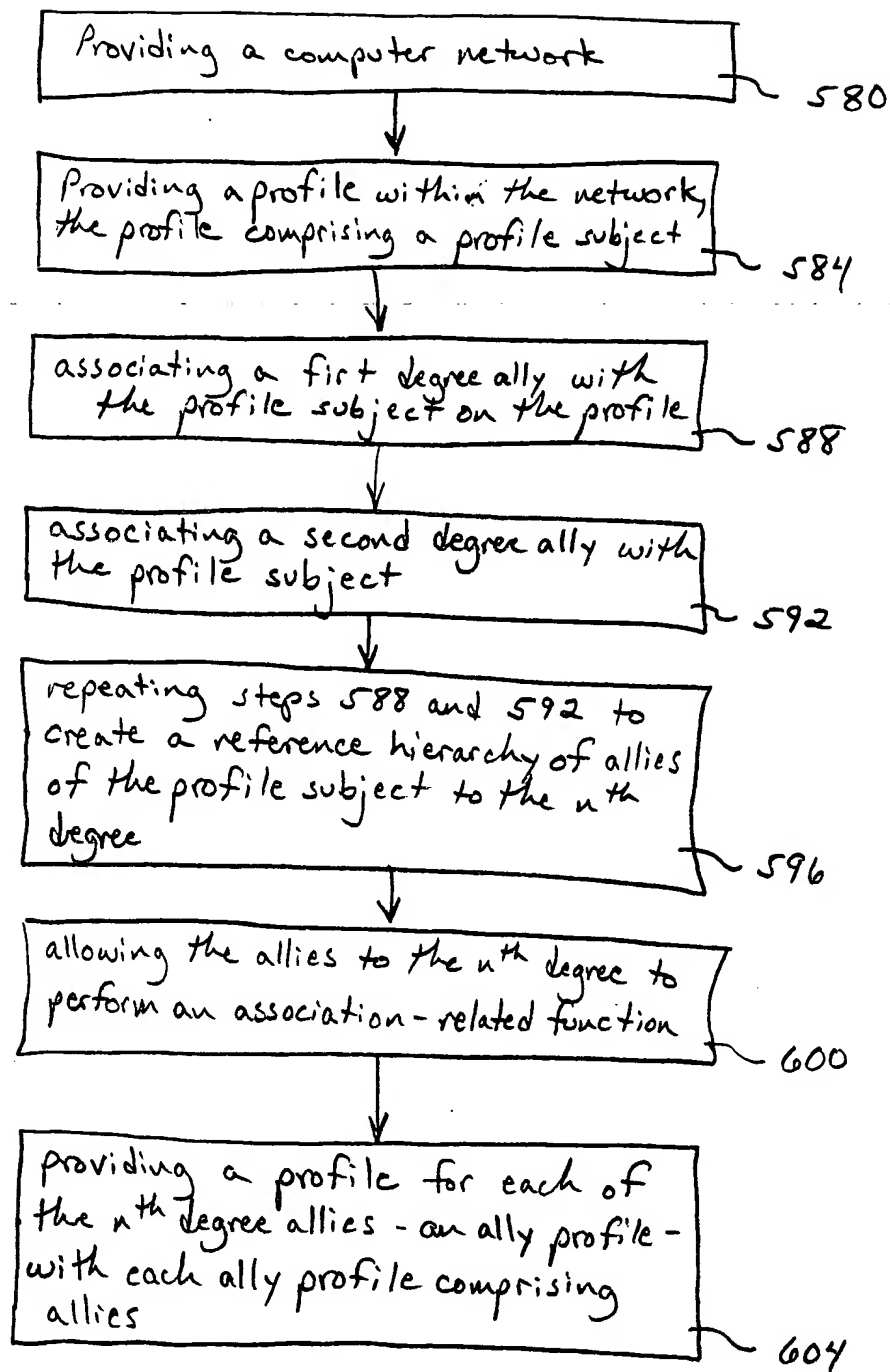 Providing a computer network
580
Providing a profile within the network,
the profile comprising a profile subject
584
associating a firt degree ally with
the profile subject on the profile
588
associating a second degree ally with
the profile subject
592
repeating steps 588 and 592 to
create a reference hierarchy of allies
of the profile subject to the nth
degree
596
allowing the allies to the nth degree to
perform an association-related function
600
providing a profile for each of
the nth degree allies - an ally profile -
with each ally profile comprising
allies
604